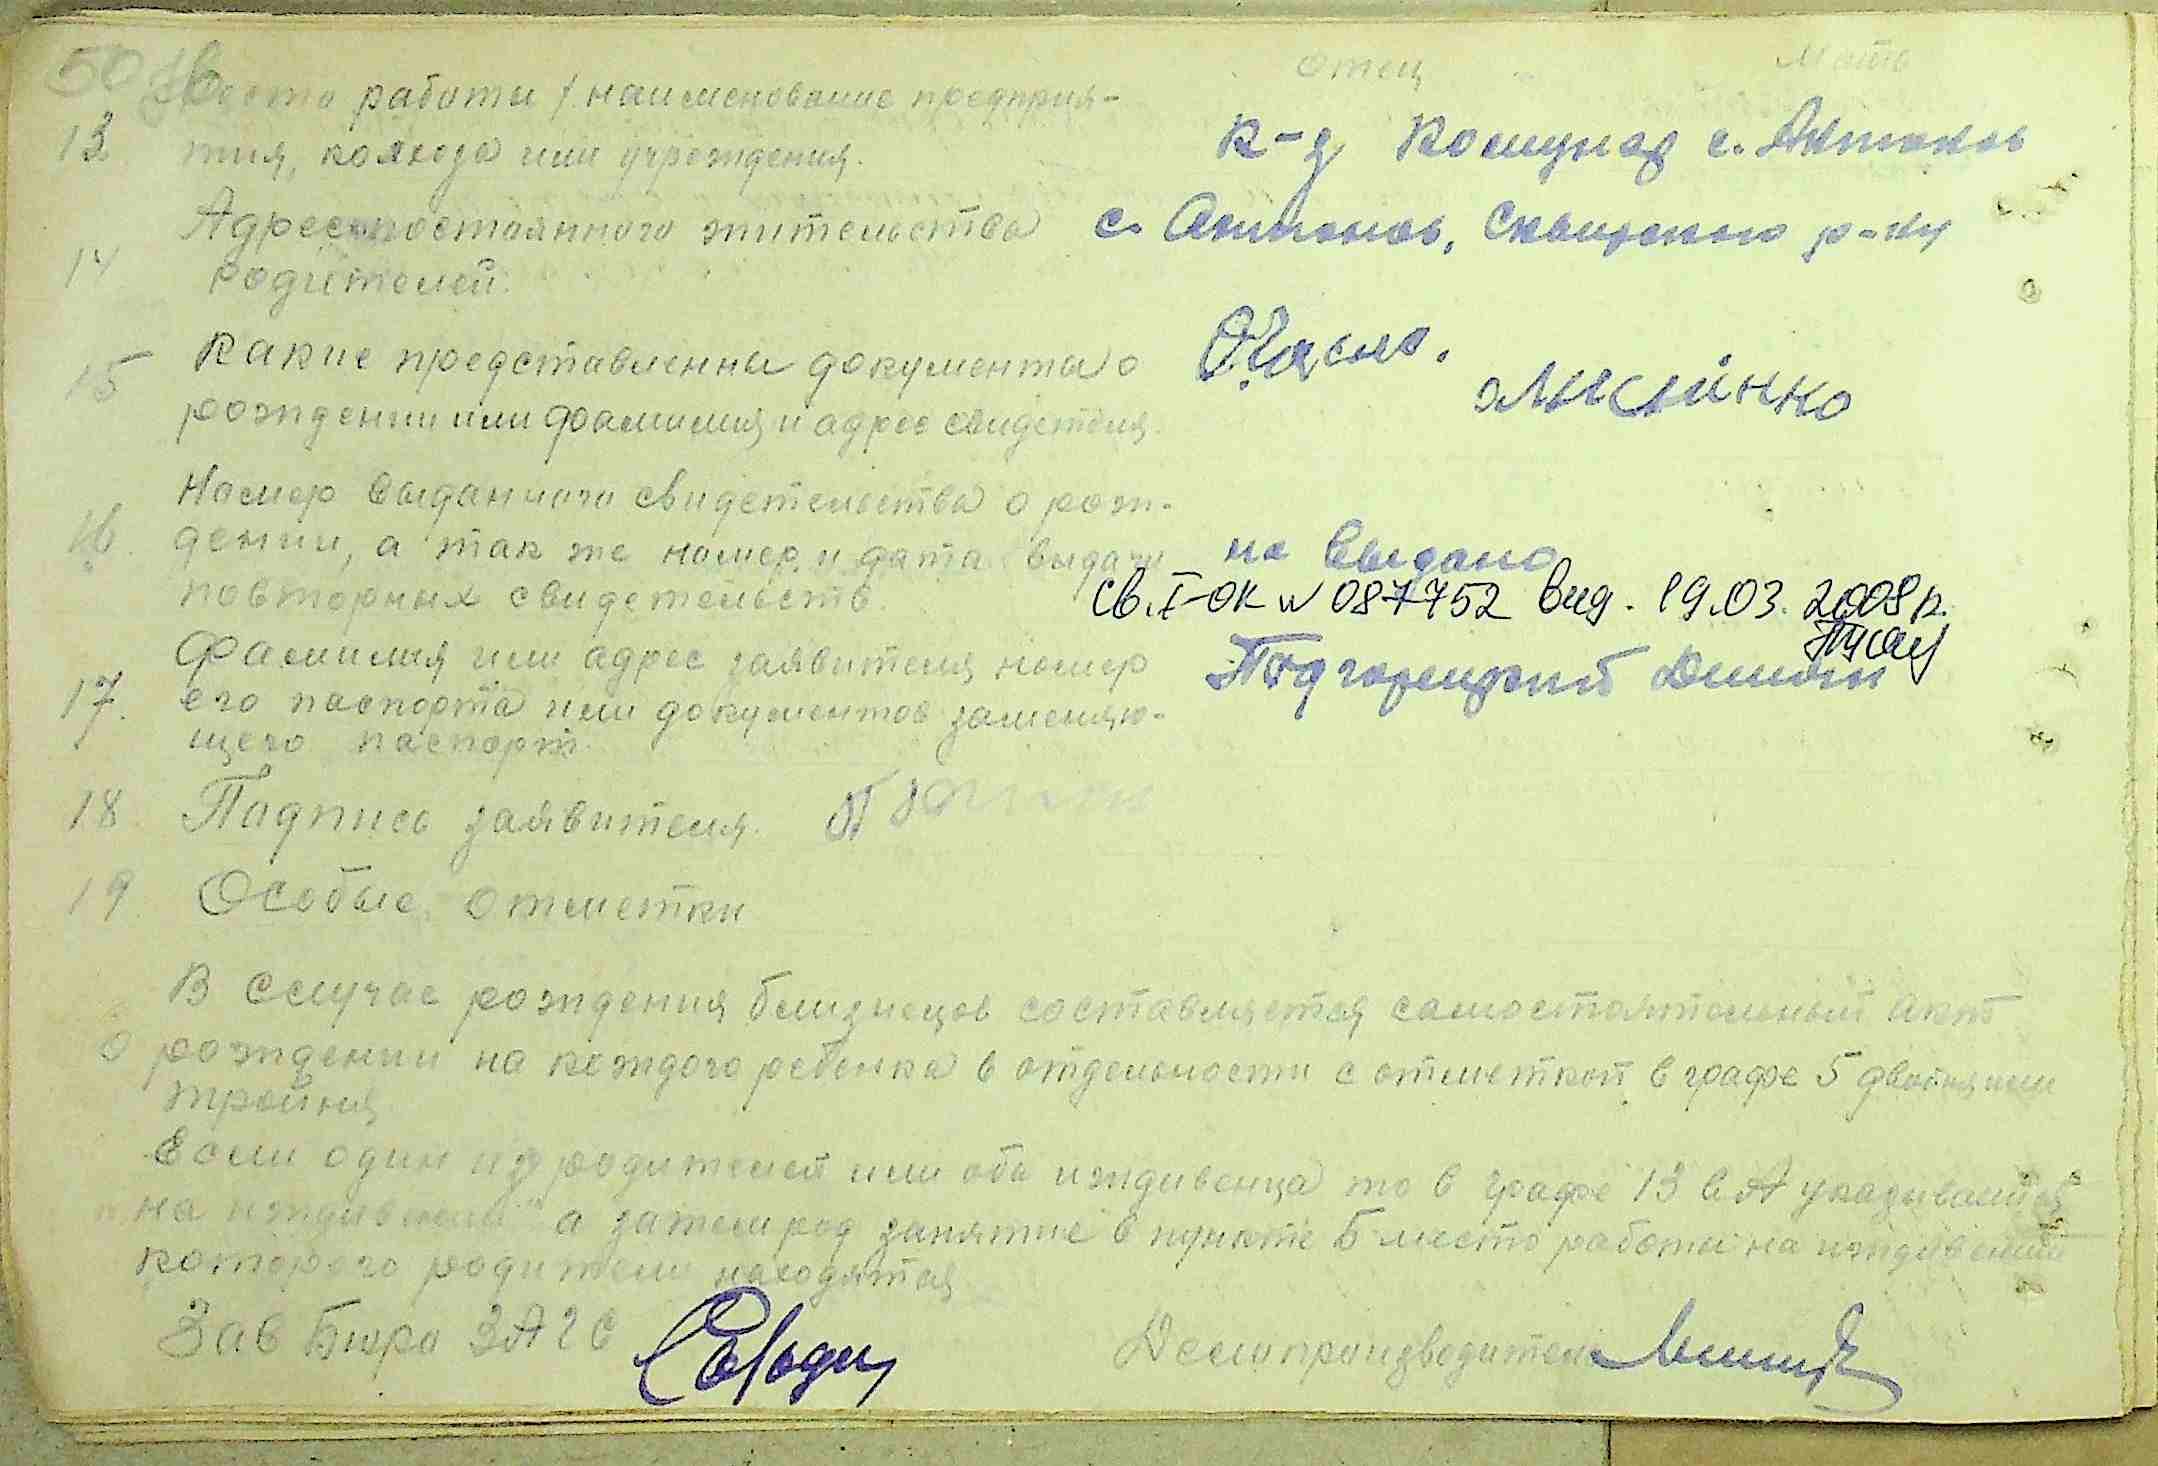 50 об
отец мать
Место работы / наименование предприя-
13 тия, колхоза или учрежедения.
к-з Комунар с. Антонов
14 Адрес постоянного жительства
родителей.
с. Антонов, Сквирского р-ну
15 Какие представленны документы о
рождении или фамилия и адрес свидетеля.
Номер выданного свидетельства о рож-
16. дении, а так же номер и дата выдачи
повторных свидетельств
не выдано
Св. I-ОК № 087752 вид. 19.03. 2008 р.
Фамилия или адрес заявителя номер
17. его паспорта или документов заменяю-
щего паспорт.
Подгорецкий
18. Подпись заявителя.
19 Особые отметки
В случае рождения близнецов составляется самостоятельный акт
о рождении на каждого ребенка в отдельности с отметкой в графе 5 двойня или
тройня
Если один из родителей или оба иждивенца то в графе 13 в. А указывается
"на иждивении" а затем род занятие в пункте Б место работы на иждивении
которого родители находятся
Зав Бюро ЗАГС
Делопроизводитель